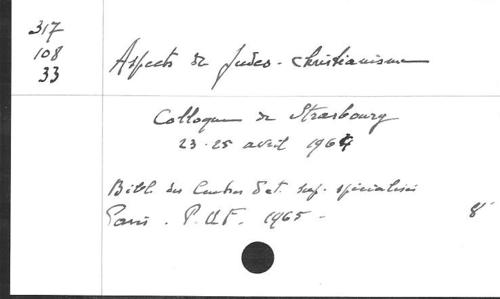 317
108
33
Aspects du Judéo-christianisme
Colloque de Strasbourg
23-25 avril 1964
Bibl. des Centres d'ét. sup. spécialisés
Paris. P.U.F. 1965 -
8°